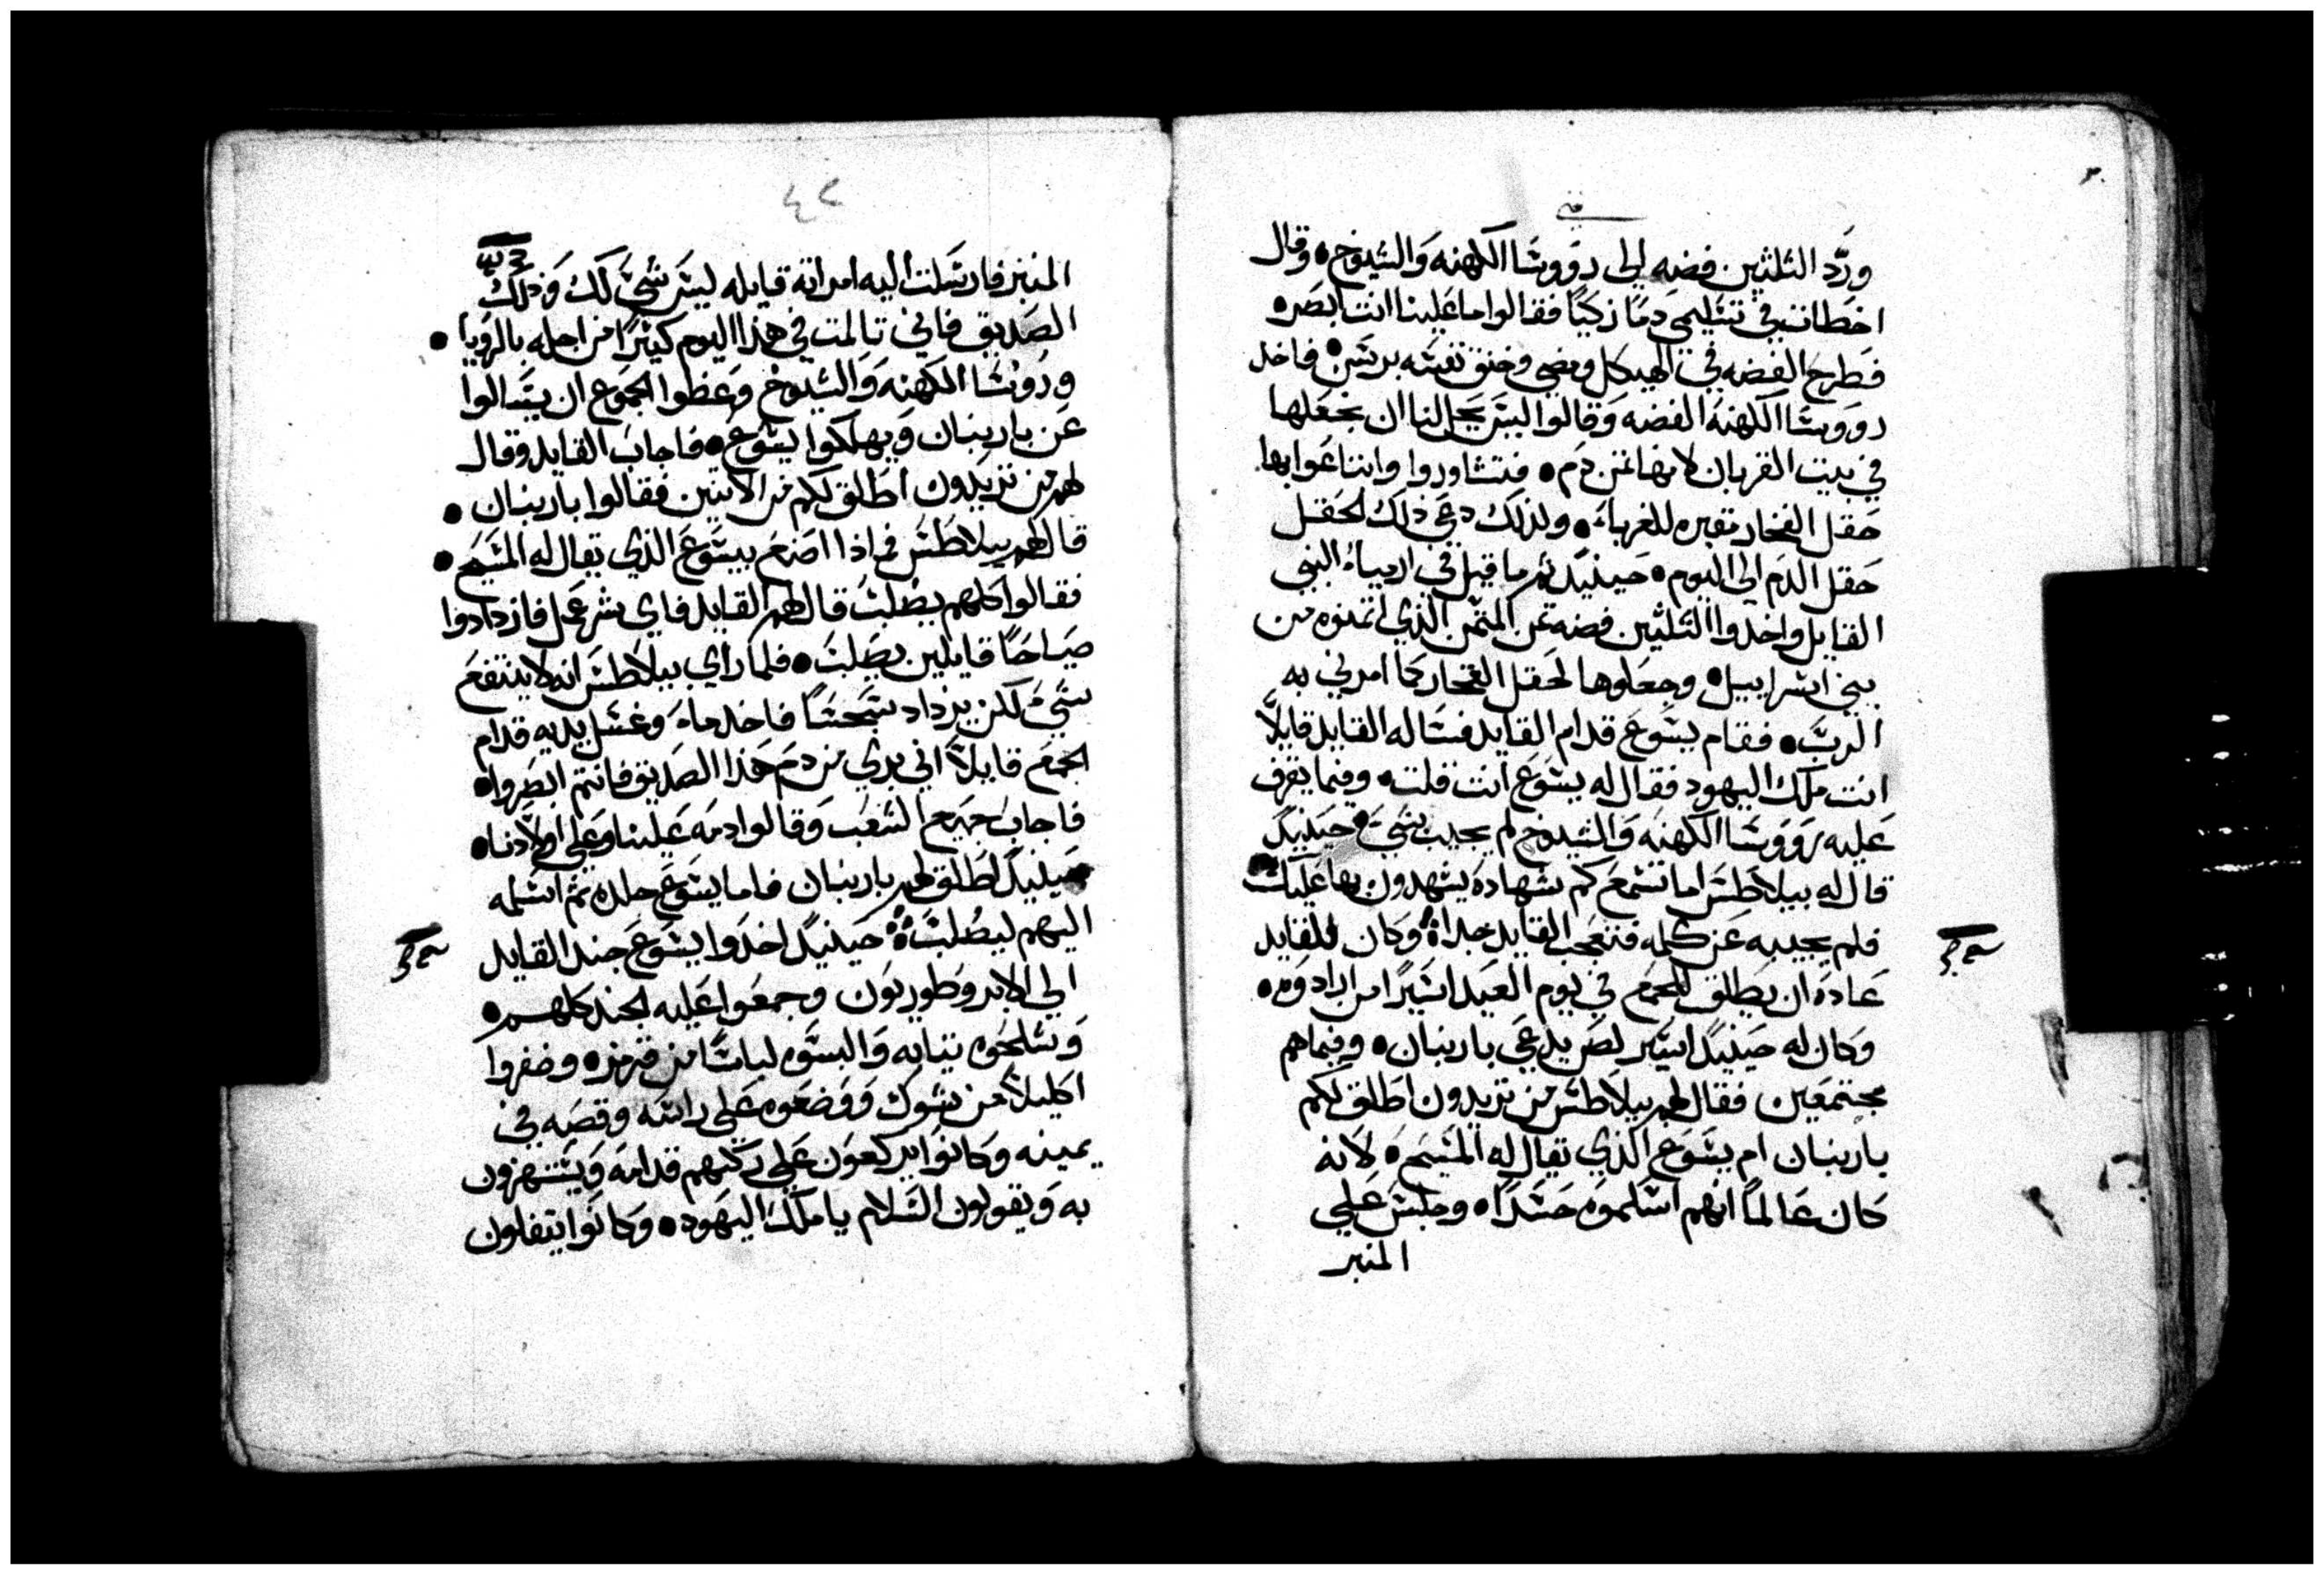 متى
ورَد الثلثين فضه الى رووسا الكهنه والشيوخ • وقال
اخطات في تسليمي دمًا زكيًا فقالوا ما علينا انت ابصره
فطرح الفضه في الهيكل ومضى وخنق نفسه برسن • فاخد
رووسا الكهنه الفضه وقالوا ليس يحل لنا ان نجعلها
في بيت القربان لانها ثمن دم • فتشاوروا وابتاعوا بها
حقل الفخار مقبره للغرباء • ولذلك دعي ذلك الحقل
حقل الدم الى اليوم • حينيدٍ تم ما قيل في ارمياء النبي
القايل واخدوا الثلثين فضه ثمن المثمن الذي اثمنوه من
بني اسراييل • وجعلوها لحقل الفخار كما امرني به
الرب • فقام يسوع قدام القايد فساله القايد قايلًا
انت ملك اليهود فقال له يسوع انت قلت • وفيما يقرف
عليه رووسا الكهنه والشيوخ لم يجيب بشي • حينيدٍ
قال له بيلاطس اما تسمع كم شهاده يشهدون بها عليك
فلم يجيبه عن كلمه فتعجب القايد جدا • وكان للقايد
عاده ان يطلق للجمع في يوم العيد اسيرًا من ارادوه •
وكان له حينيدٍ اسير لص يدعي باربنان • وفيما هم
مجتمعين فقال لهم بيلاطس من تريدون اطلق لكم
باربنان ام يسوع الذي يقال له المسيح • لانه
كان عالمًا انهم اسلموه حسدًا • وجلس علي
المنبر
٤٢
المنبر فارسلت اليه امراته قايله ليس شيٌ لك وذلك
الصديق فاني تالمت في هذا اليوم كثيرًا من اجله بالرويا •
ورووسا الكهنه والشيوخ وعظوا الجموع ان يسالوا
عن باربنان ويهلكوا يسوع • فاجاب القايد وقال
لهم من تريدون اطلق لكم من الاثنين فقالوا باربنان •
قال لهم بيلاطس فماذا اصنع بيسوع الذي يقال له المسيح •
فقالوا كلهم يصلب قال لهم القايد فاي شر عمل فازدادوا
صياحًا قايلين يصلب • فلما راي بيلاطس انه لا ينتفع
بشيٌ لكن يزداد سجسًا فاخد ماءً وغسل يديه قدام
الجمع قايلًا اني بري من دم هذا الصديق فانتم ابصروا •
فاجاب جميع الشعب وقالوا دمه علينا وعلي اولادنا •
حينيدٍ اطلق لهم باربنان فاما يسوع جلده ثم اسلمه
اليهم ليصلب • حينيدٍ اخدوا يسوع جند القايد
الي الابروطوريون وجمعوا عليه الجند كلهم •
وشلحوه ثيابه والبسوه لباسًا من قرمز • وضفروا
اكليلًا من شوك ووضعوه علي راسه وقصبه في
يمينه وكانوا يركعون علي ركبهم قدامه ويستهزون
به ويقولون السلام يا ملك اليهود • وكانوا يتفلون